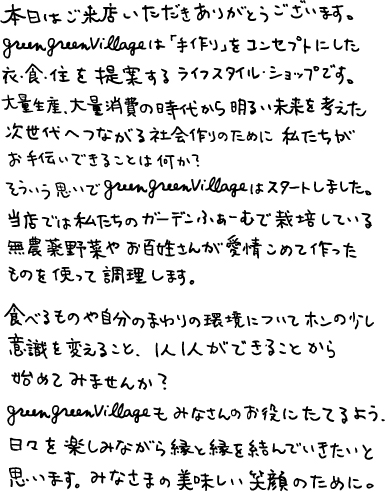 本日はご来店いただきありがとうございます。
greengreenVillageは「手作り」をコンセプトにした
衣・食・住を提案するライフスタイル・ショップです。
大量生産、大量消費の時代から明るい未来を考えた
次世代へつながる社会作りのために私たちが
お手伝いできることは何か?
そういう思いでgreengreenVillageはスタートしました。
当店では私たちのガーデンふぁーむで栽培している
無農薬野菜やお百姓さんが愛情こめて作った
ものを使って調理します。
食べるものや自分のまわりの環境についてホンの少し
意識を変えること、1人1人ができることから
始めてみませんか?
greengreenVillageもみなさんのお役にたてるよう、
日々を楽しみながら縁と縁を結んでいきたいと
思います。みなさまの美味しい笑顔のために。